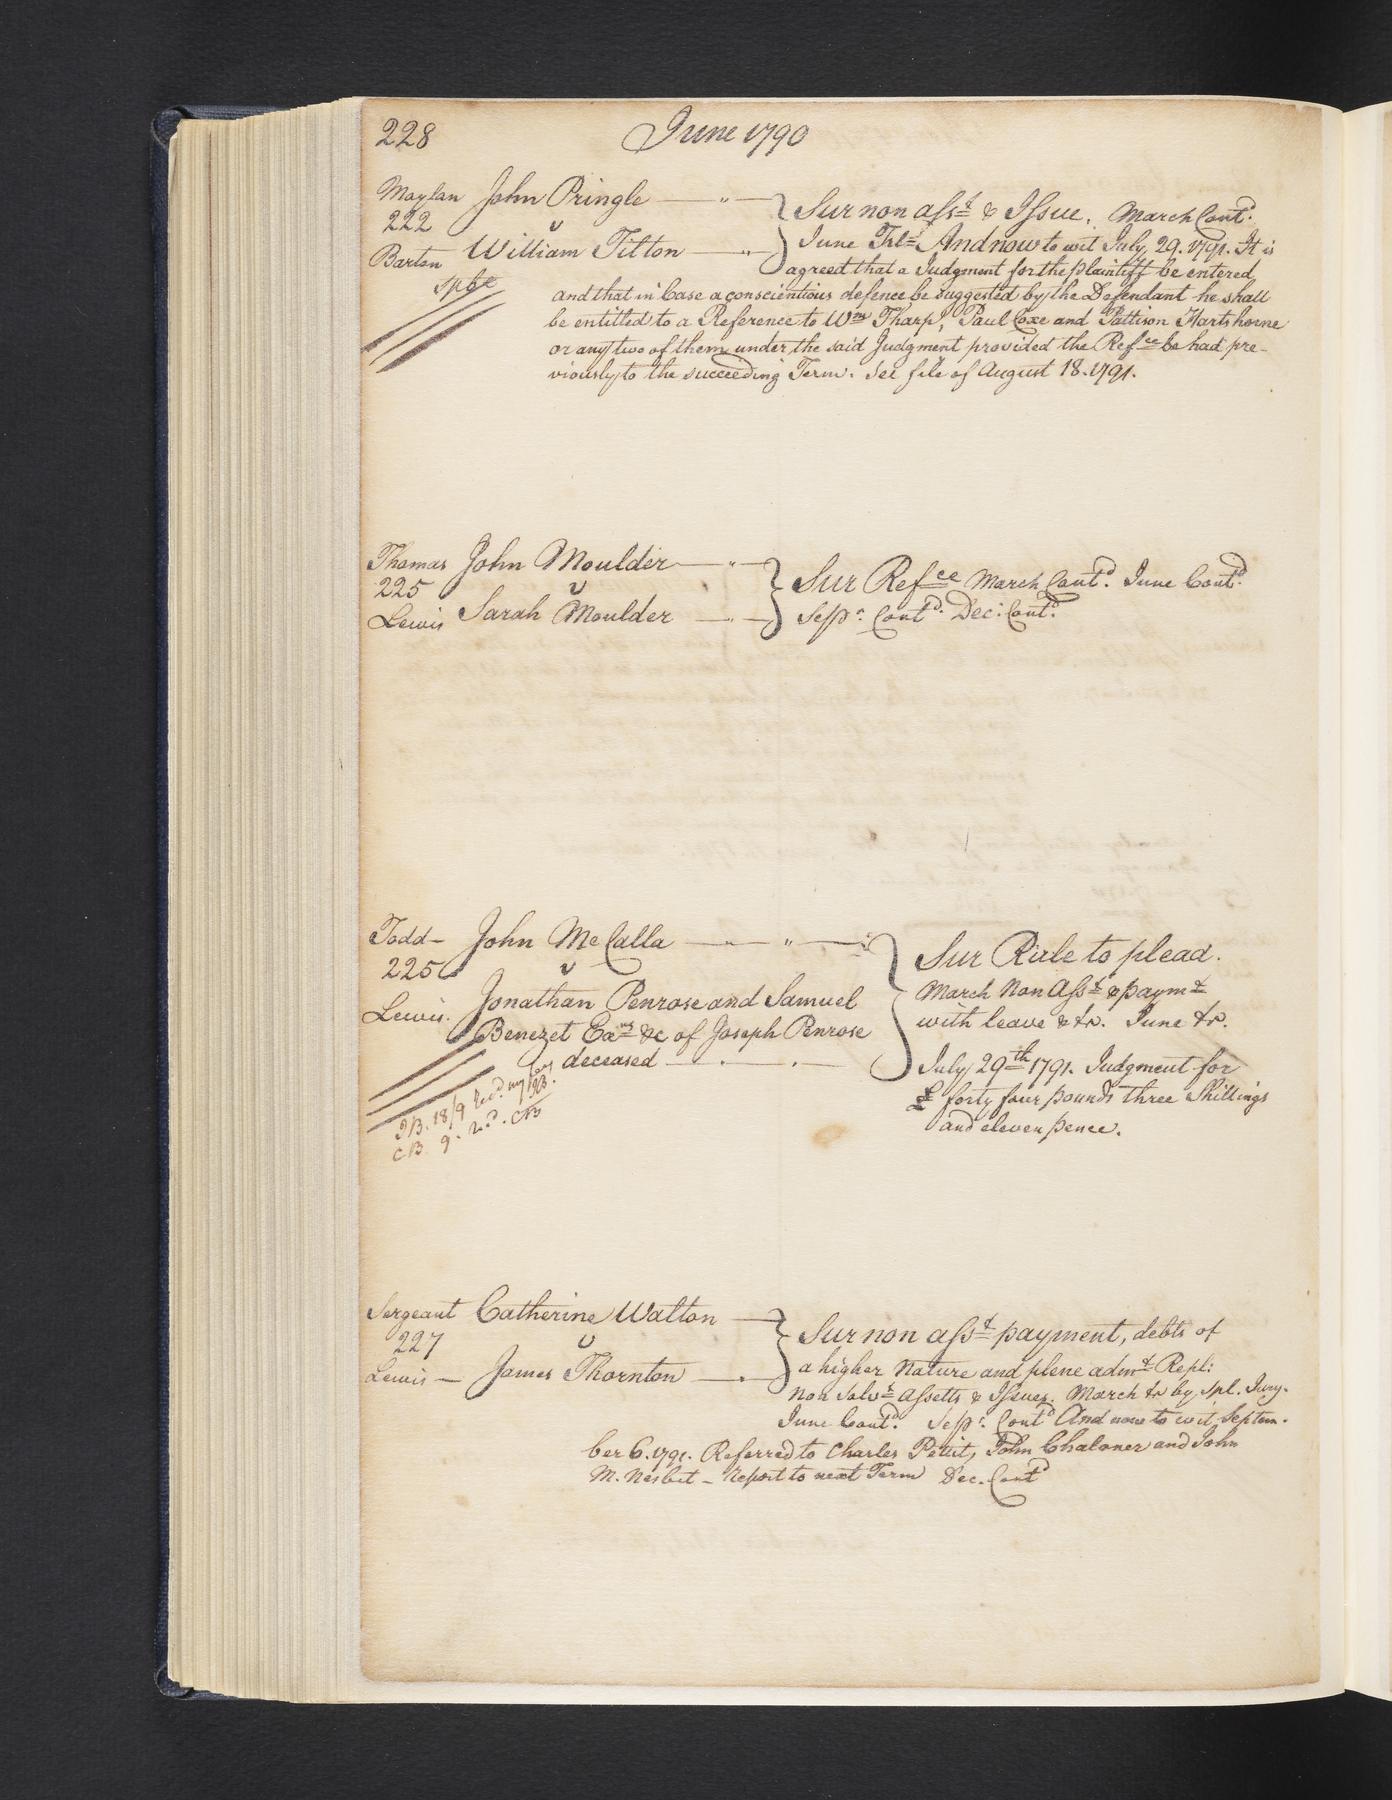 228 June 1790
Moylan John Pringle
222 v
Barton William Tilton
Sur non Asst & Issue. March Contd.
June Trl And now to wit July 29. 1791. It is
agreed that a Judgment for the Plaintiff be entered
and that in Case a conscientious defence be suggested by the Defendant he shall
be entitled to a Reference to Wm Tharp, Paul Coxe and Pattison Hartshorne
or any two of them under the said Judgment provided the Refce be had pre-
viously to the succeeding Term. See file of August 18. 1791.
Thomas John Moulder
225 v
Lewis Sarah Moulder
Sur Refce March Contd. June Contd.
Sepr. Contd. Dec: Contd.
Todd John McCalla
225 v
Lewis. Jonathan Penrose and Samuel
Benezet Exrs &c of Joseph Penrose
deceased
Sur Rule to plead.
March Non Asst & paymt
with leave & tr. June tr.
July 29th 1791. Judgment for
£ forty four pounds three Shillings
and eleven pence.
J B. 18/9 Recd my
C B. 9. 2d. C B
Sergeant Catherine Walton
227 v
Lewis — James Thornton
Sur non Asst payment, debts of
a higher Nature and plene admt Repl:
Non Solvt Assetts & Issues. March tr by Spl. Jury.
June Contd. Sepr. Contd And now to wit Septem-
ber 6. 1791. Referred to Charles Pettit, John Chaloner and John
M. Nesbit - Report to next Term Dec. Contd